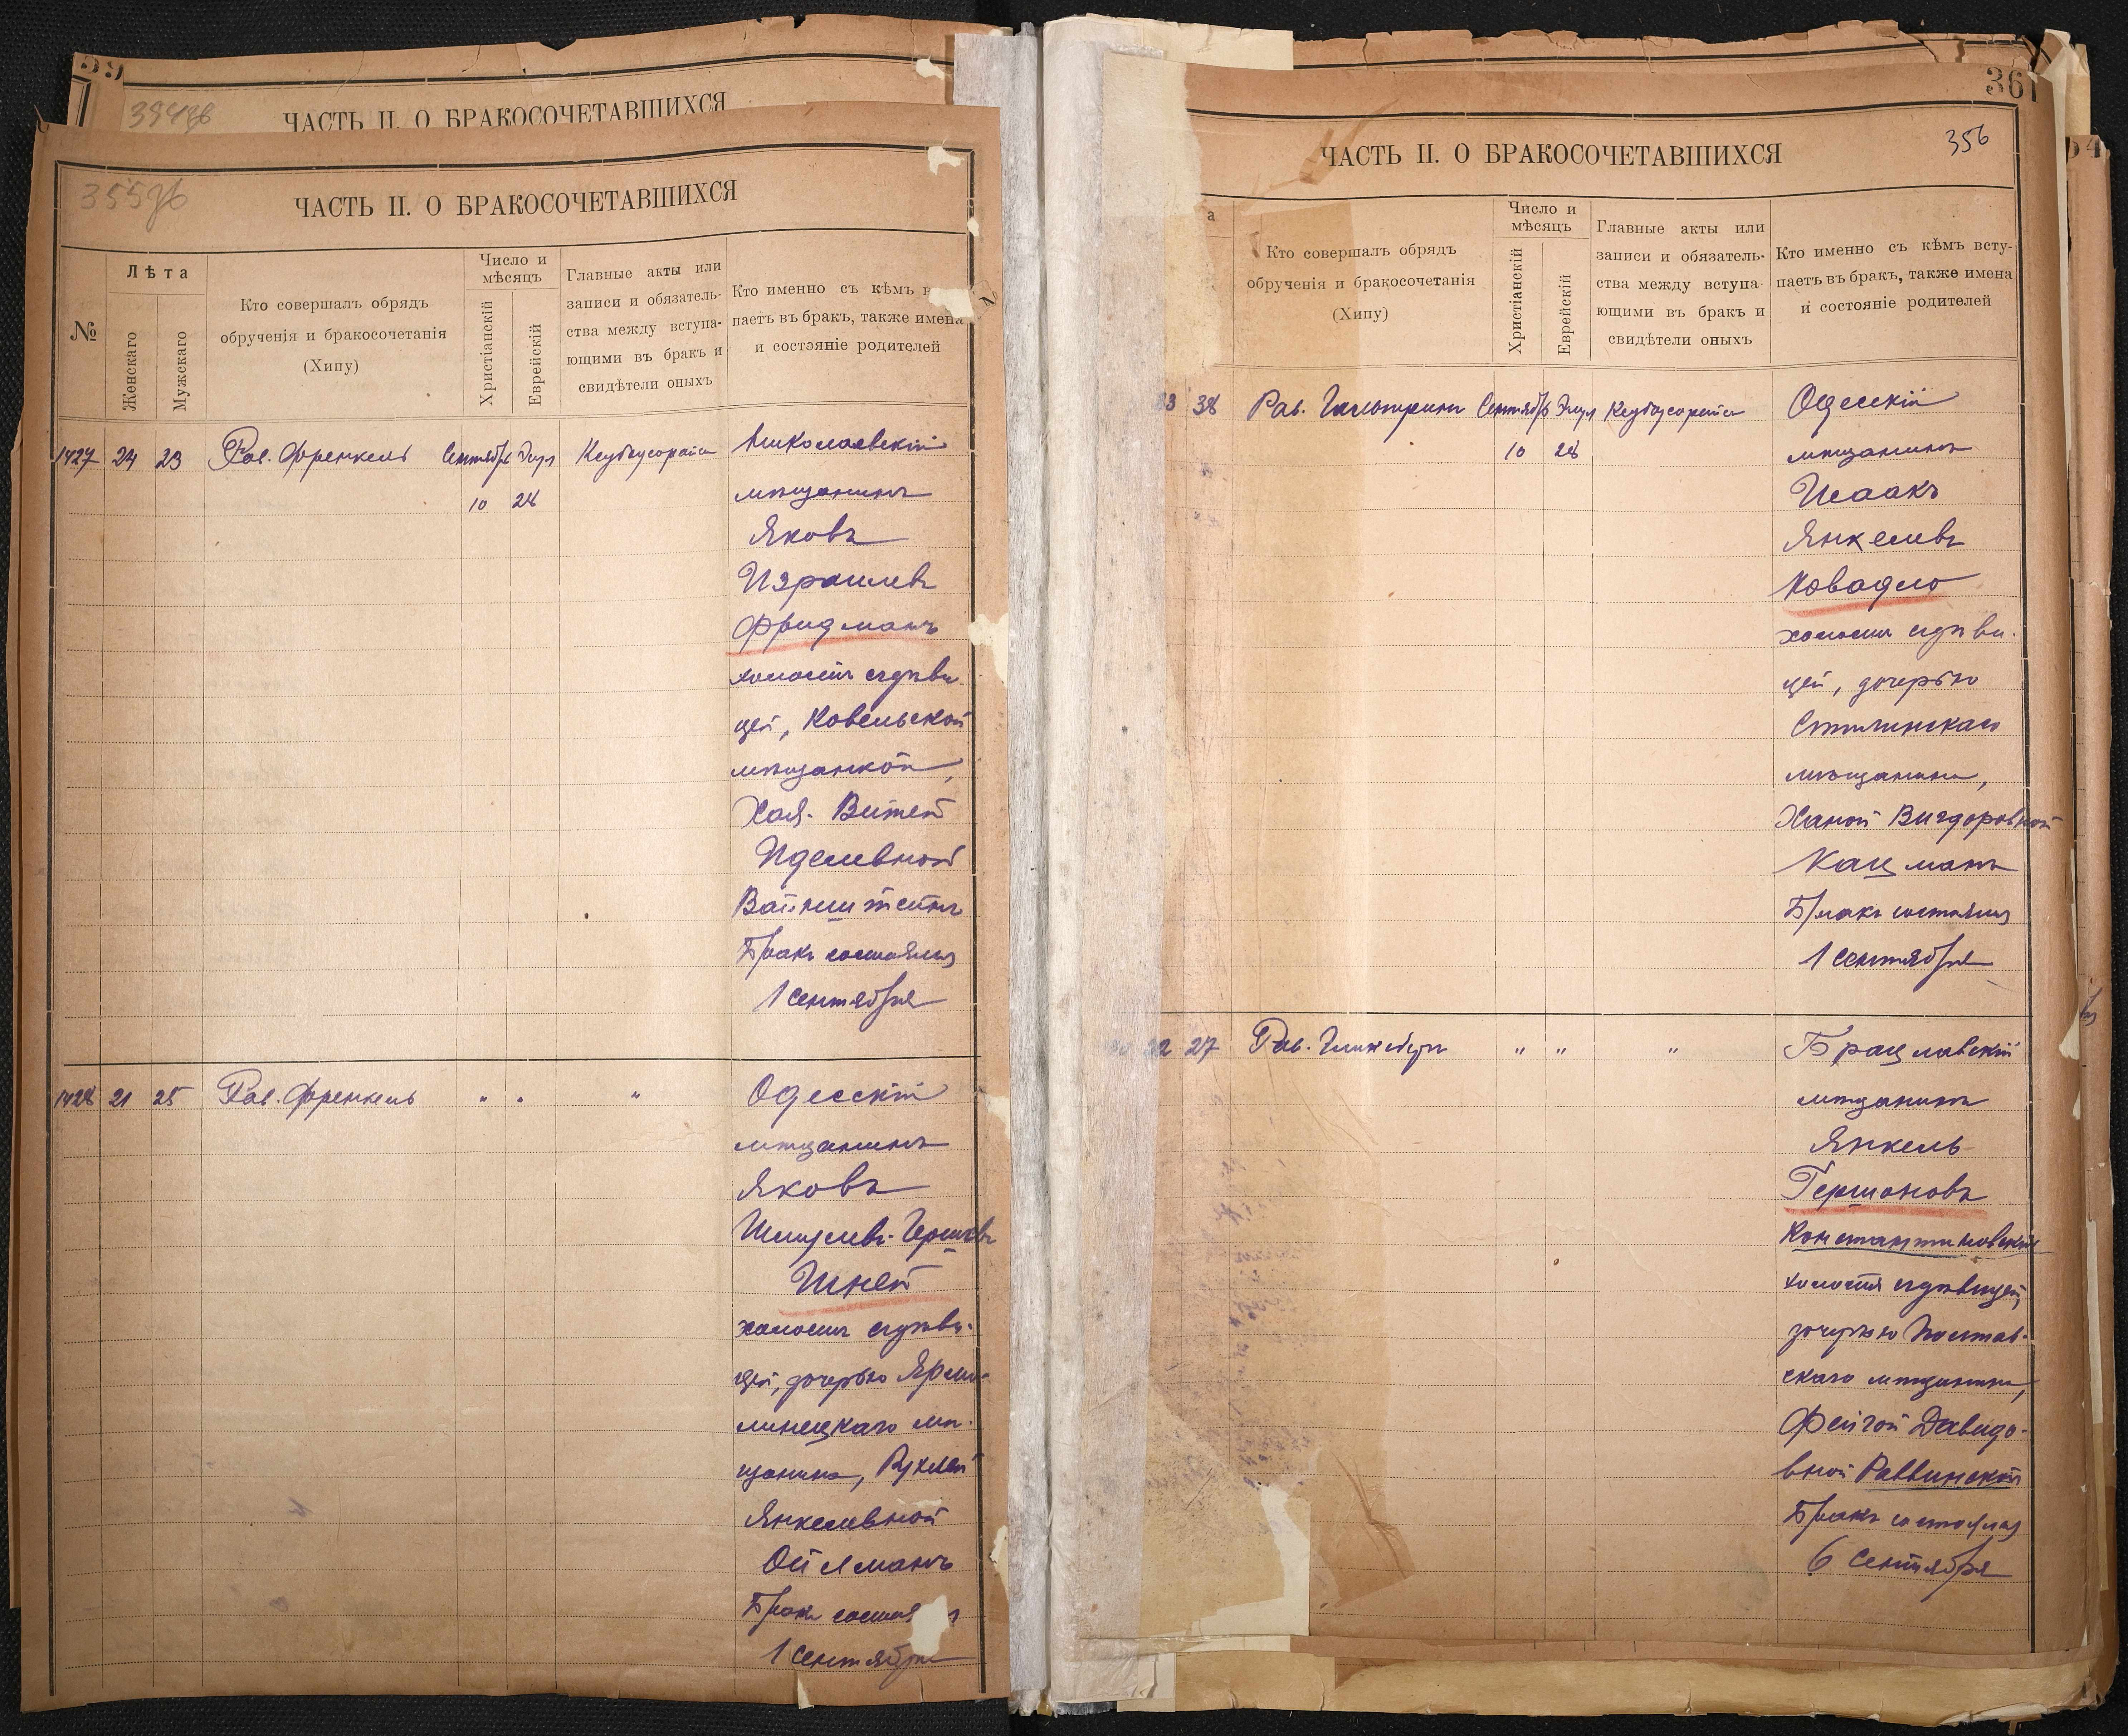 394 об
ЧАСТЬ II. О БРАКОСОЧЕТАВШИХСЯ
355 об
ЧАСТЬ II. О БРАКОСОЧЕТАВШИХСЯ
№
Лѣта
Женскаго
Мужскаго
Кто совершалъ обрядъ
обрученія и бракосочетанія
(Хипу)
Число и
мѣсяцъ
Христіанскій
Еврейскій
Главные акты или
записи и обязатель-
ства между вступа-
ющими въ бракъ и
свидѣтели оныхъ
Кто именно съ кѣмъ в
паетъ въ бракъ, также имена
и состояніе родителей
1427 24 23 Рав. Френкель Сентябрь Элул Кеубоусорайса Николаевскій
10 28 мѣщанинъ
Яковъ
Израилевъ
Фридманъ
холостъ съ дѣви-
цей, Ковельской
мѣщанкой,
Хая-Витей
Иделевной
Вайнштейнъ
Бракъ состоялся
1 сентября
1428 21 25 Рав. Френкель " " " Одесскій
мѣщанинъ
Яковъ
Шмулевъ-Гершковъ
Шней
холостъ съ дѣви-
цей, дочерью Ярмо-
линецкаго мѣ-
щанина, Рухлей
Янкелевной
Ойлманъ
Бракъ состоя
1 сентября
361
356
ЧАСТЬ II. О БРАКОСОЧЕТАВШИХСЯ
а
Кто совершалъ обрядъ
обрученія и бракосочетанія
(Хипу)
Число и
мѣсяцъ
Христіанскій
Еврейскій
Главные акты или
записи и обязатель-
ства между вступа-
ющими въ бракъ и
свидѣтели оныхъ
Кто именно съ кѣмъ всту-
паетъ въ бракъ, также имена
и состояніе родителей
23 38 Рав. Гальперинъ Сентябрь Элул Кеубоусорайса Одесскій
10 28 мѣщанинъ
Исаакъ
Янкелевъ
Ковадло
холостъ съ дѣви-
цей, дочерью
мѣщанина,
Ханой Вигдоровной
Кацманъ
Бракъ состоялся
1 сентября
22 27 Рав. Гинзбургъ " " " Брацлавскій
мѣщанинъ
Янкель
Гершоновъ
Константиновскій
холостъ съ дѣвицей,
дочерью Полтав-
скаго мѣщанина,
Фейгой Давидо-
вной Раввинской
Бракъ состоялся
6 Сентября